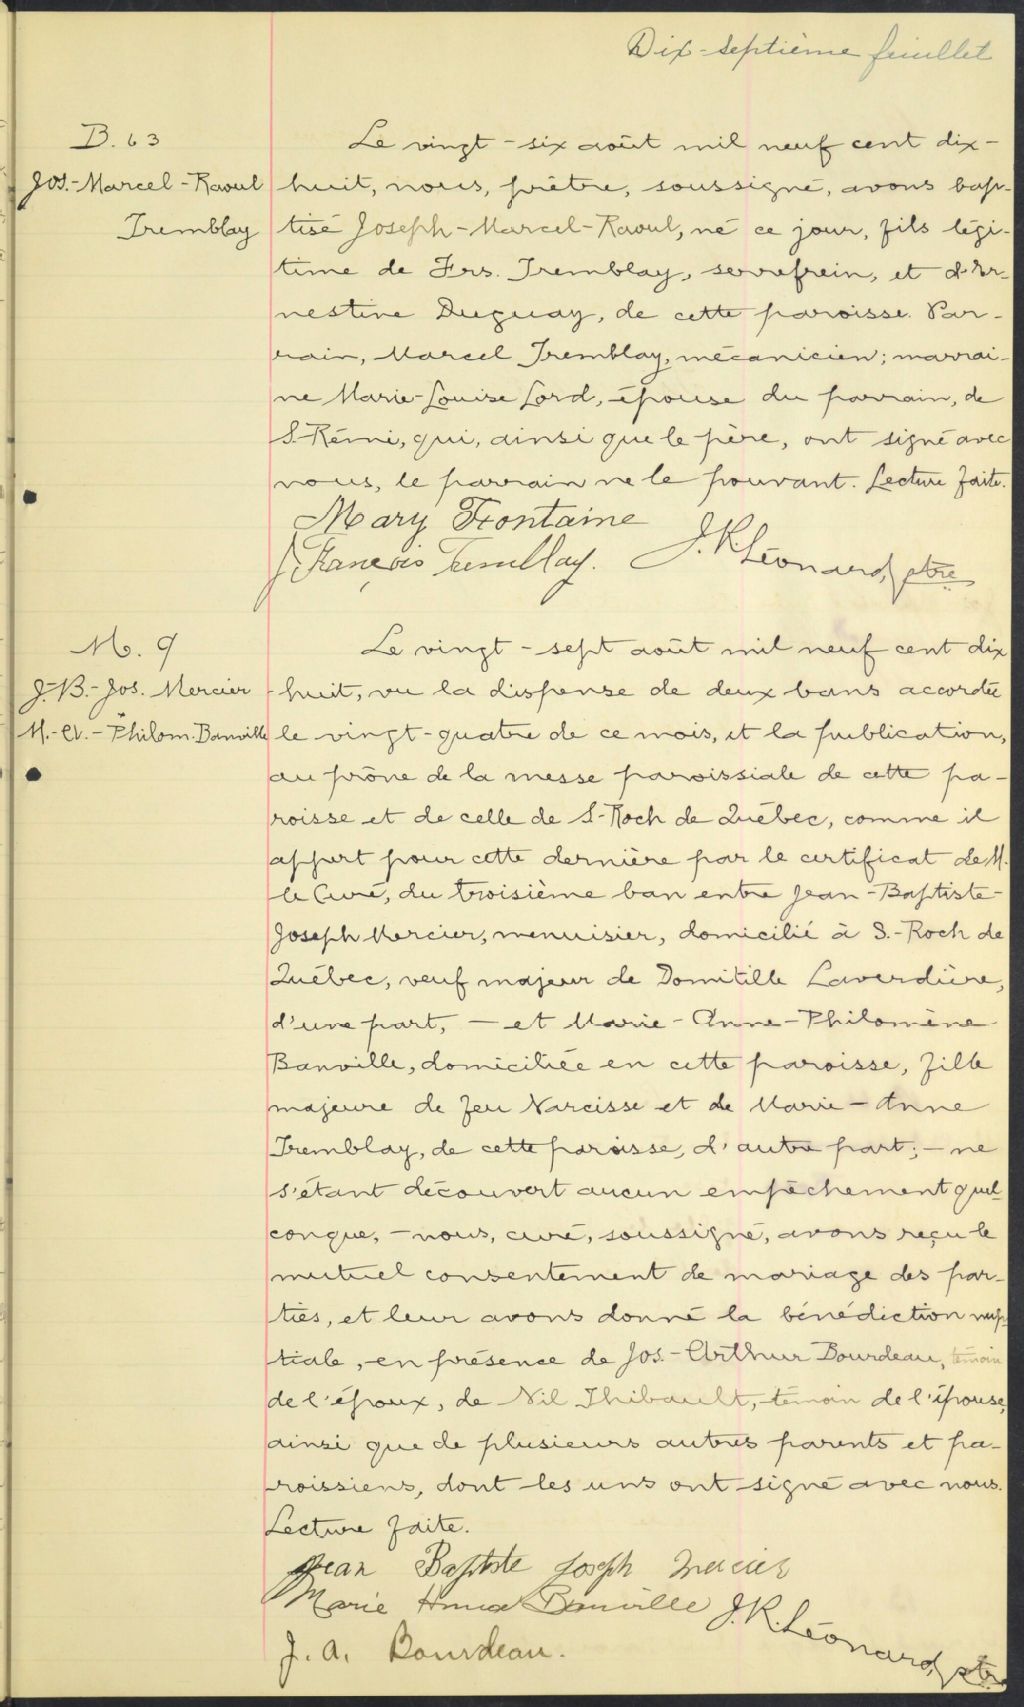 Dix-septième feuillet
B. 63
Jos.-Marcel-Raoul
Tremblay
Le vingt-six août mil neuf cent dix-
huit, nous, prêtre, soussigné, avons bap-
tisé Joseph-Marcel-Raoul, né ce jour, fils légi-
time de Frs. Tremblay, serrefrein, et d'Er-
nestine Duguay, de cette paroisse. Par-
rain, Marcel Tremblay, mécanicien; marrai-
ne Marie-Louise Lord, épouse du parrain, de
S.-Rémi, qui, ainsi que le père, ont signé avec
nous, le parrain ne le pouvant. Lecture faite.
Mary Frontaine
François Tremblay.
J. K. Léonard, ptre
M. 9
J.-B.-Jos. Mercier
M.-A.-Philom. Banville
Le vingt-sept août mil neuf cent dix
huit, vu la dispense de deux bans accordée
le vingt-quatre de ce mois, et la publication,
au prône de la messe paroissiale de cette pa-
roisse et de celle de S.-Roch de Québec, comme il
appert pour cette dernière par le certificat de M.
le Curé, du troisième ban entre Jean-Baptiste-
Joseph Mercier, menuisier, domicilié à S.-Roch de
Québec, veuf majeur de Domitille Laverdière,
d'une part, - et Marie-Anne-Philomène
Banville, domiciliée en cette paroisse, fille
majeure de feu Narcisse et de Marie-Anne
Tremblay, de cette paroisse, d'autre part; - ne
s'étant découvert aucun empêchement quel
conque, - nous, curé, soussigné, avons reçu le
mutuel consentement de mariage des par-
ties, et leur avons donné la bénédiction nup-
tiale, en présence de Jos.-Arthur Bourdeau, témoin
de l'époux, de Nil Thibault, témoin de l'épouse,
ainsi que de plusieurs autres parents et pa-
roissiens, dont les uns ont signé avec nous.
Lecture faite.
Jean Baptiste Joseph Mercier
Marie Anna Banville
J. K. Léonard, ptre
J. A. Bourdeau.